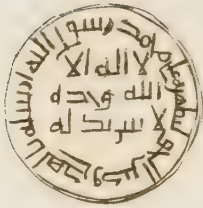 لا اله الا
الله وحده
لا سريك له
محمد رسول الله ارسله بالهدى ودين الحق ليظهره على